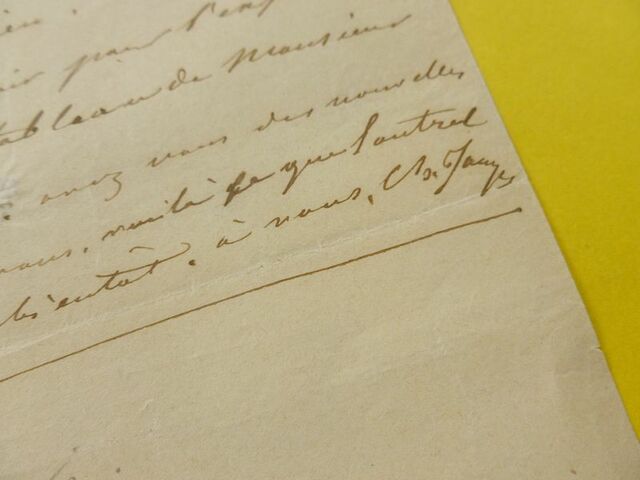 pour
tableau de Monsieur
avez vous des nouvelles
vous. voilà ce que l'autre
bientôt. à vous,